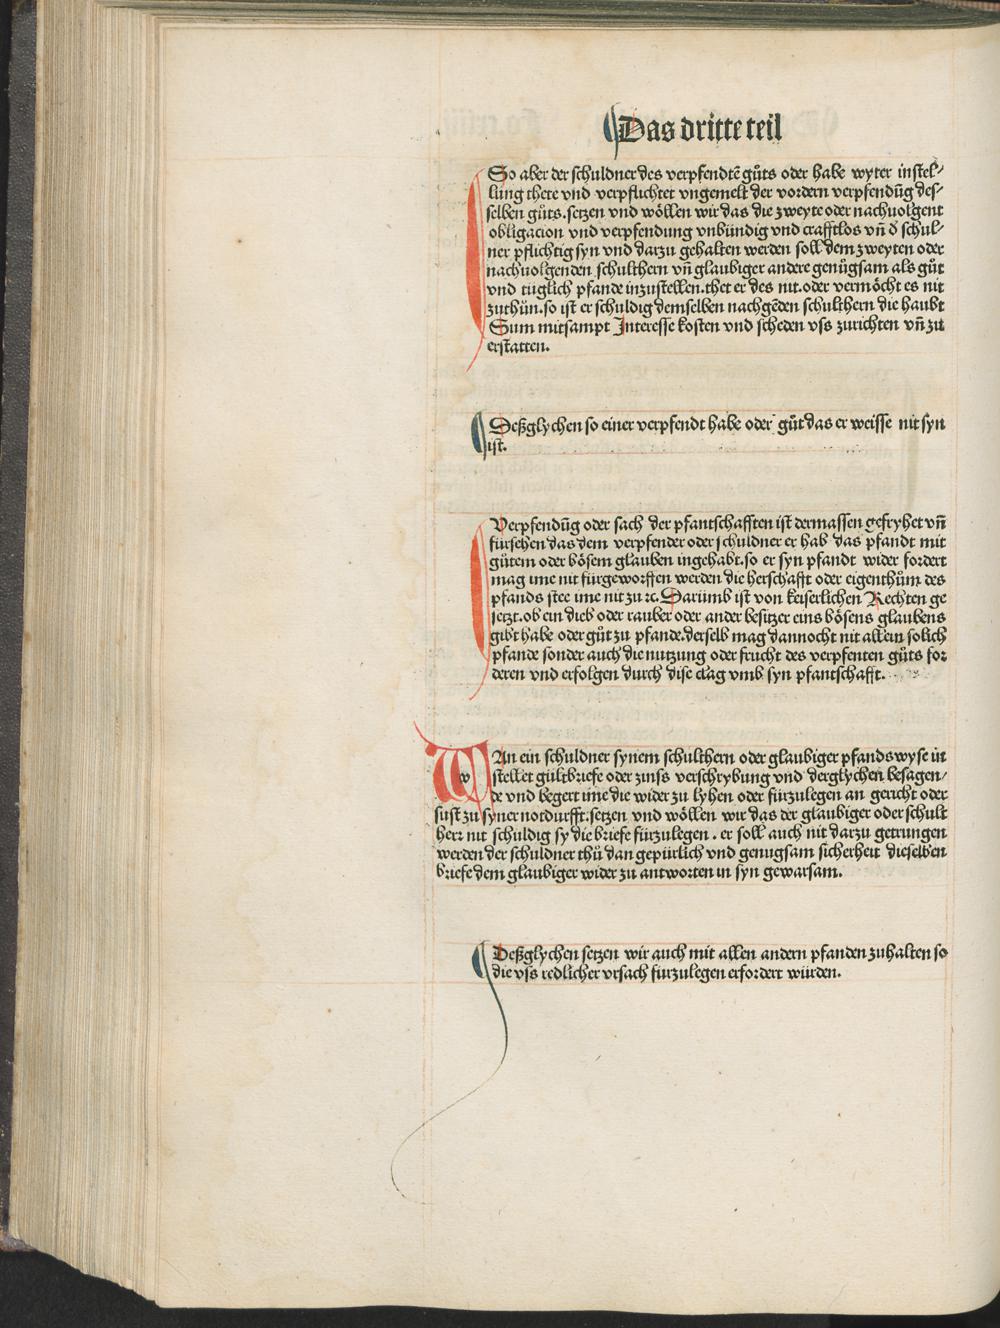 Das dritte teil
So aber der schuldner des verpfendtē gůts oder habe wyter instel⸗
lung thete vnd verpflichtet vngemelt der vordern verpfendūg des⸗
selben gůts. setzen vnd wöllen wir das die zweyte oder nachuolgent
obligacion vnd verpfendung vnbündig vnd crafftlos vn̄ d̄ schul⸗
ner pflichtig syn vnd darzu gehalten werden soll dem zweyten oder
nachuolgenden schulthern vn̄ glaubiger andere genůgsam als gůt
vnd tuglich pfande inzustellen. thet er des nit. oder vermöcht es nit
zuthün. so ist er schuldig demselben nachgēden schulthern die haubt
Sum mitsampt Interesse kosten vnd scheden vss zurichten vn̄ zu
erstatten.
Deßglychen so einer verpfendt habe oder gůt das er weisse nit syn
ist.
Verpfendūg oder sach der pfantschafften ist dermassen gefryhet vn̄
fürsehen das dem verpfender oder schuldner er hab das pfandt mit
gůtem oder bösem glauben ingehabt. so er syn pfandt wider fordert
mag ime nit fürgeworffen werden die herschafft oder eigenthům des
pfands stee ime nit zu ꝛc. Darümb ist von keiserlichen Rechten ge
setzt. ob ein dieb oder rauber oder ander besitzer eins bösens glaubens
gibt habe oder gůt zu pfande. derselb mag dannocht nit allein solich
pfande sonder auch die nutzung oder frucht des verpfenten gůts for
deren vnd erfolgen durch dise clag vmb syn pfantschafft.
WAn ein schuldner synem schulthern oder glaubiger pfandswyse in
stellet gültbriefe oder zinss verschrybung vnd derglychen besagen⸗
de vnd begert ime die wider zu lyhen oder fürzulegen an gericht oder
sust zu syner notdurfft. setzen vnd wöllen wir das der glaubiger oder schult
herr nit schuldig sy die briefe fürzulegen. er soll auch nit darzu getrungen
werden der schuldner thů dan gepürlich vnd genugsam sicherheit dieselben
briefe dem glaubiger wider zu antworten in syn gewarsam.
Deßglychen setzen wir auch mit allen andern pfanden zuhalten so
die vss redlicher vrsach fürzulegen erfordert würden.